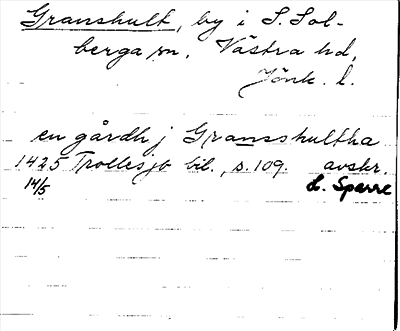 Granshult, by i S. Sol-
berga sn. Västra hd,
Jönk. l.
en gårdh j Gransshultha
1425 Trollesjö bil., s. 109. avskr.
14/5 L. Sparre